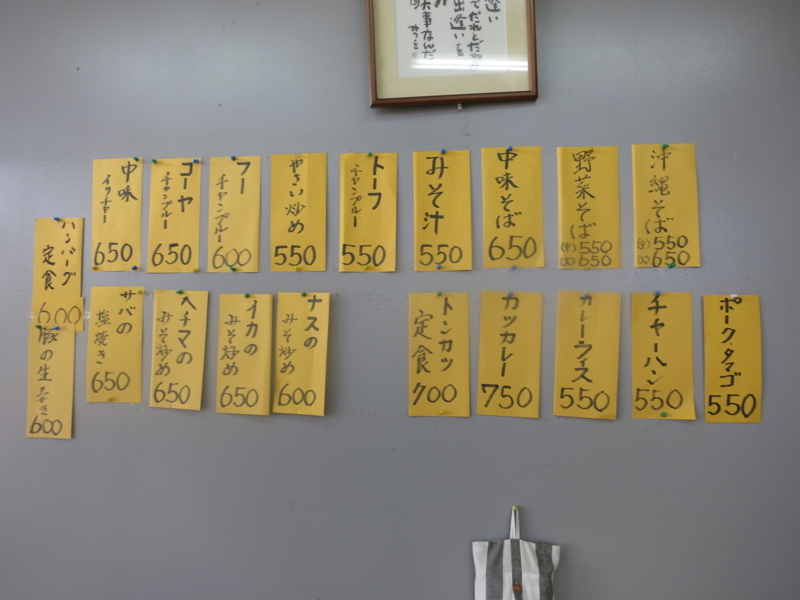 逢い
でだれとだれが
出逢いを
大事なんだ
沖縄そば
(中)550
(大)650
野菜そば
(中)550
(大)650
中味そば
650
みそ汁
550
トーフ
チャンプルー
550
やさい炒め
550
フー
チャンプルー
600
ゴーヤ
チャンプルー
650
中味
イリチャー
650
ハンバーグ
定食
600
ポーク・タマゴ
550
チャーハン
550
カレーライス
550
カツカレー
750
トンカツ
定食
700
ナスの
みそ炒め
600
イカの
みそ炒め
650
ヘチマの
みそ炒め
650
サバの
塩焼き
650
豚の生
600